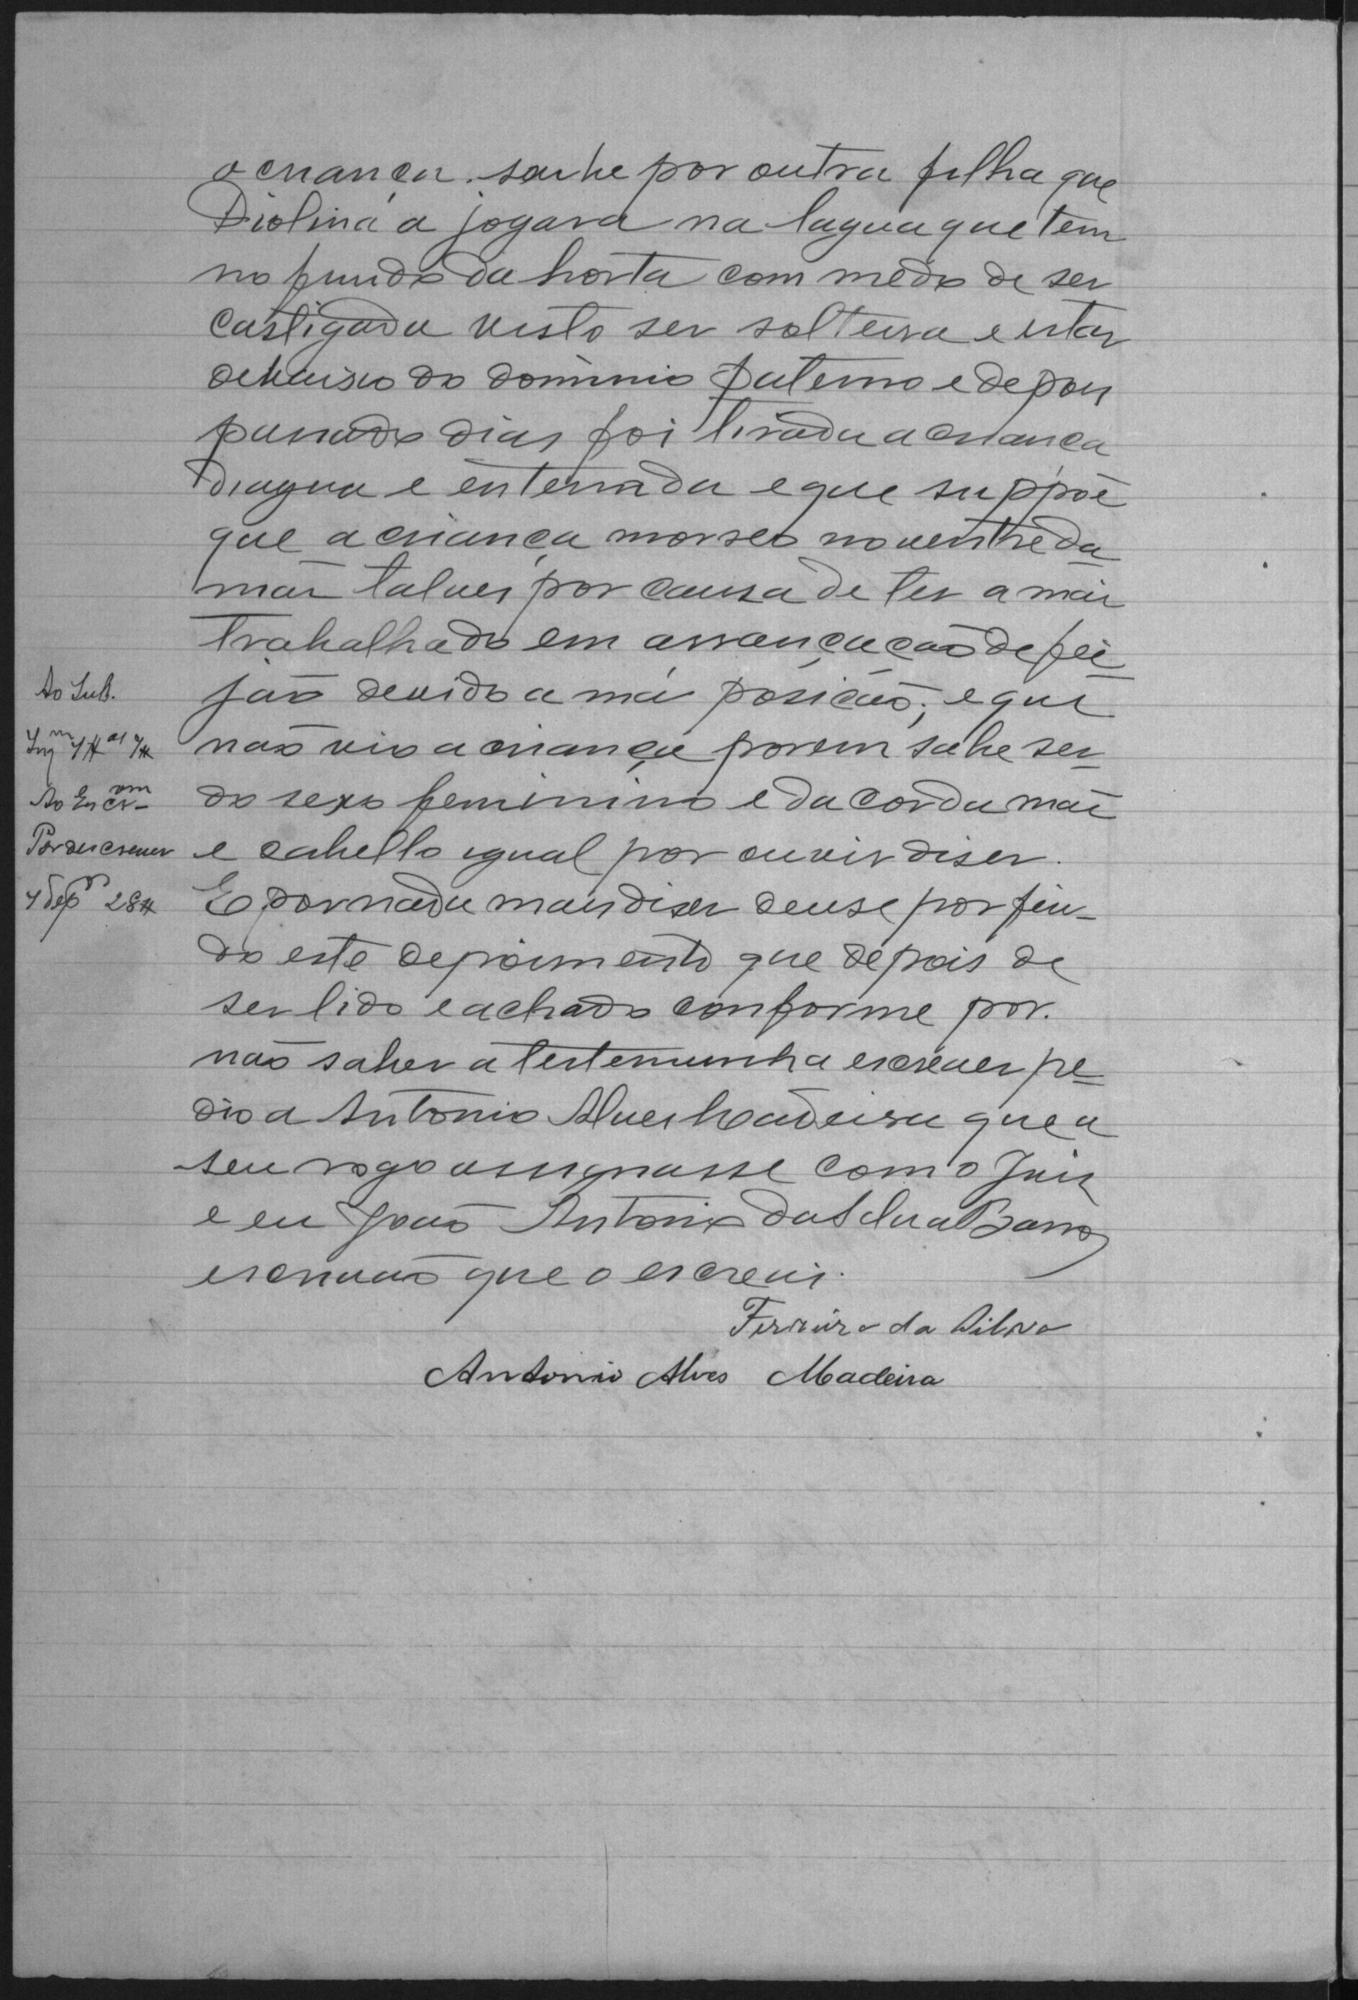 a criança. soube por outra filha que
Diolina a jogara na lagua que tem
no fundo da horta com medo de ser
castigada visto ser solteira e estar
debaixo do dominio paterno e depois
passado dias foi tirada a criança
d'agua e enterrada e que suppõe
que a criança morreo no ventre da
mãi talves por causa de ter a mãi
trabalhado em arrancação de fei=
jão devido a má posição; e que
não vio a criança porem sabe ser
do sexo feminino e da cor da mãi
e cabello igual por ouvir diser.
E por nada mais diser deuse por fin-
do este depoimento que depois de
ser lido e achado conforme por
não saber a testemunha escrever pe=
dio a Antonio Alves Madeira que a
seu rogo assignasse com o Juis
e eu João Antonio da Silva Barros
escrivão que o escrevi.
Ferreira da Silva
Antonio Alves Madeira
Ao Sub.
Ao Escr
Por descrever